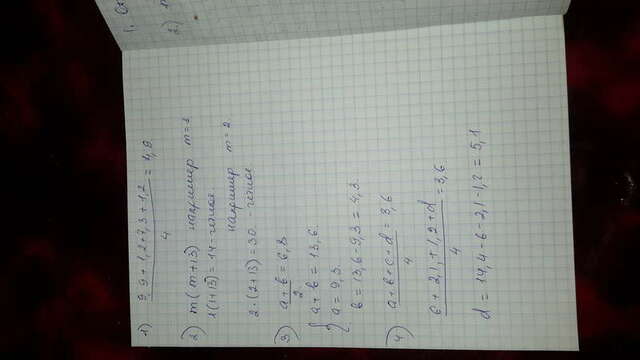 1) 9,9+1,2+7,3+1,2 / 4 = 4,9
2) m(m+13) например m=1
1(1+13)=14-четное
например m=2
2·(2+13)=30-четное
3) a+b / 2 = 6,8
{ a+b=13,6
a=9,3
b=13,6-9,3=4,3
4) a+b+c+d / 4 = 3,6
6+2,1+1,2+d / 4 = 3,6
d=14,4-6-2,1-1,2=5,1
1.
2)